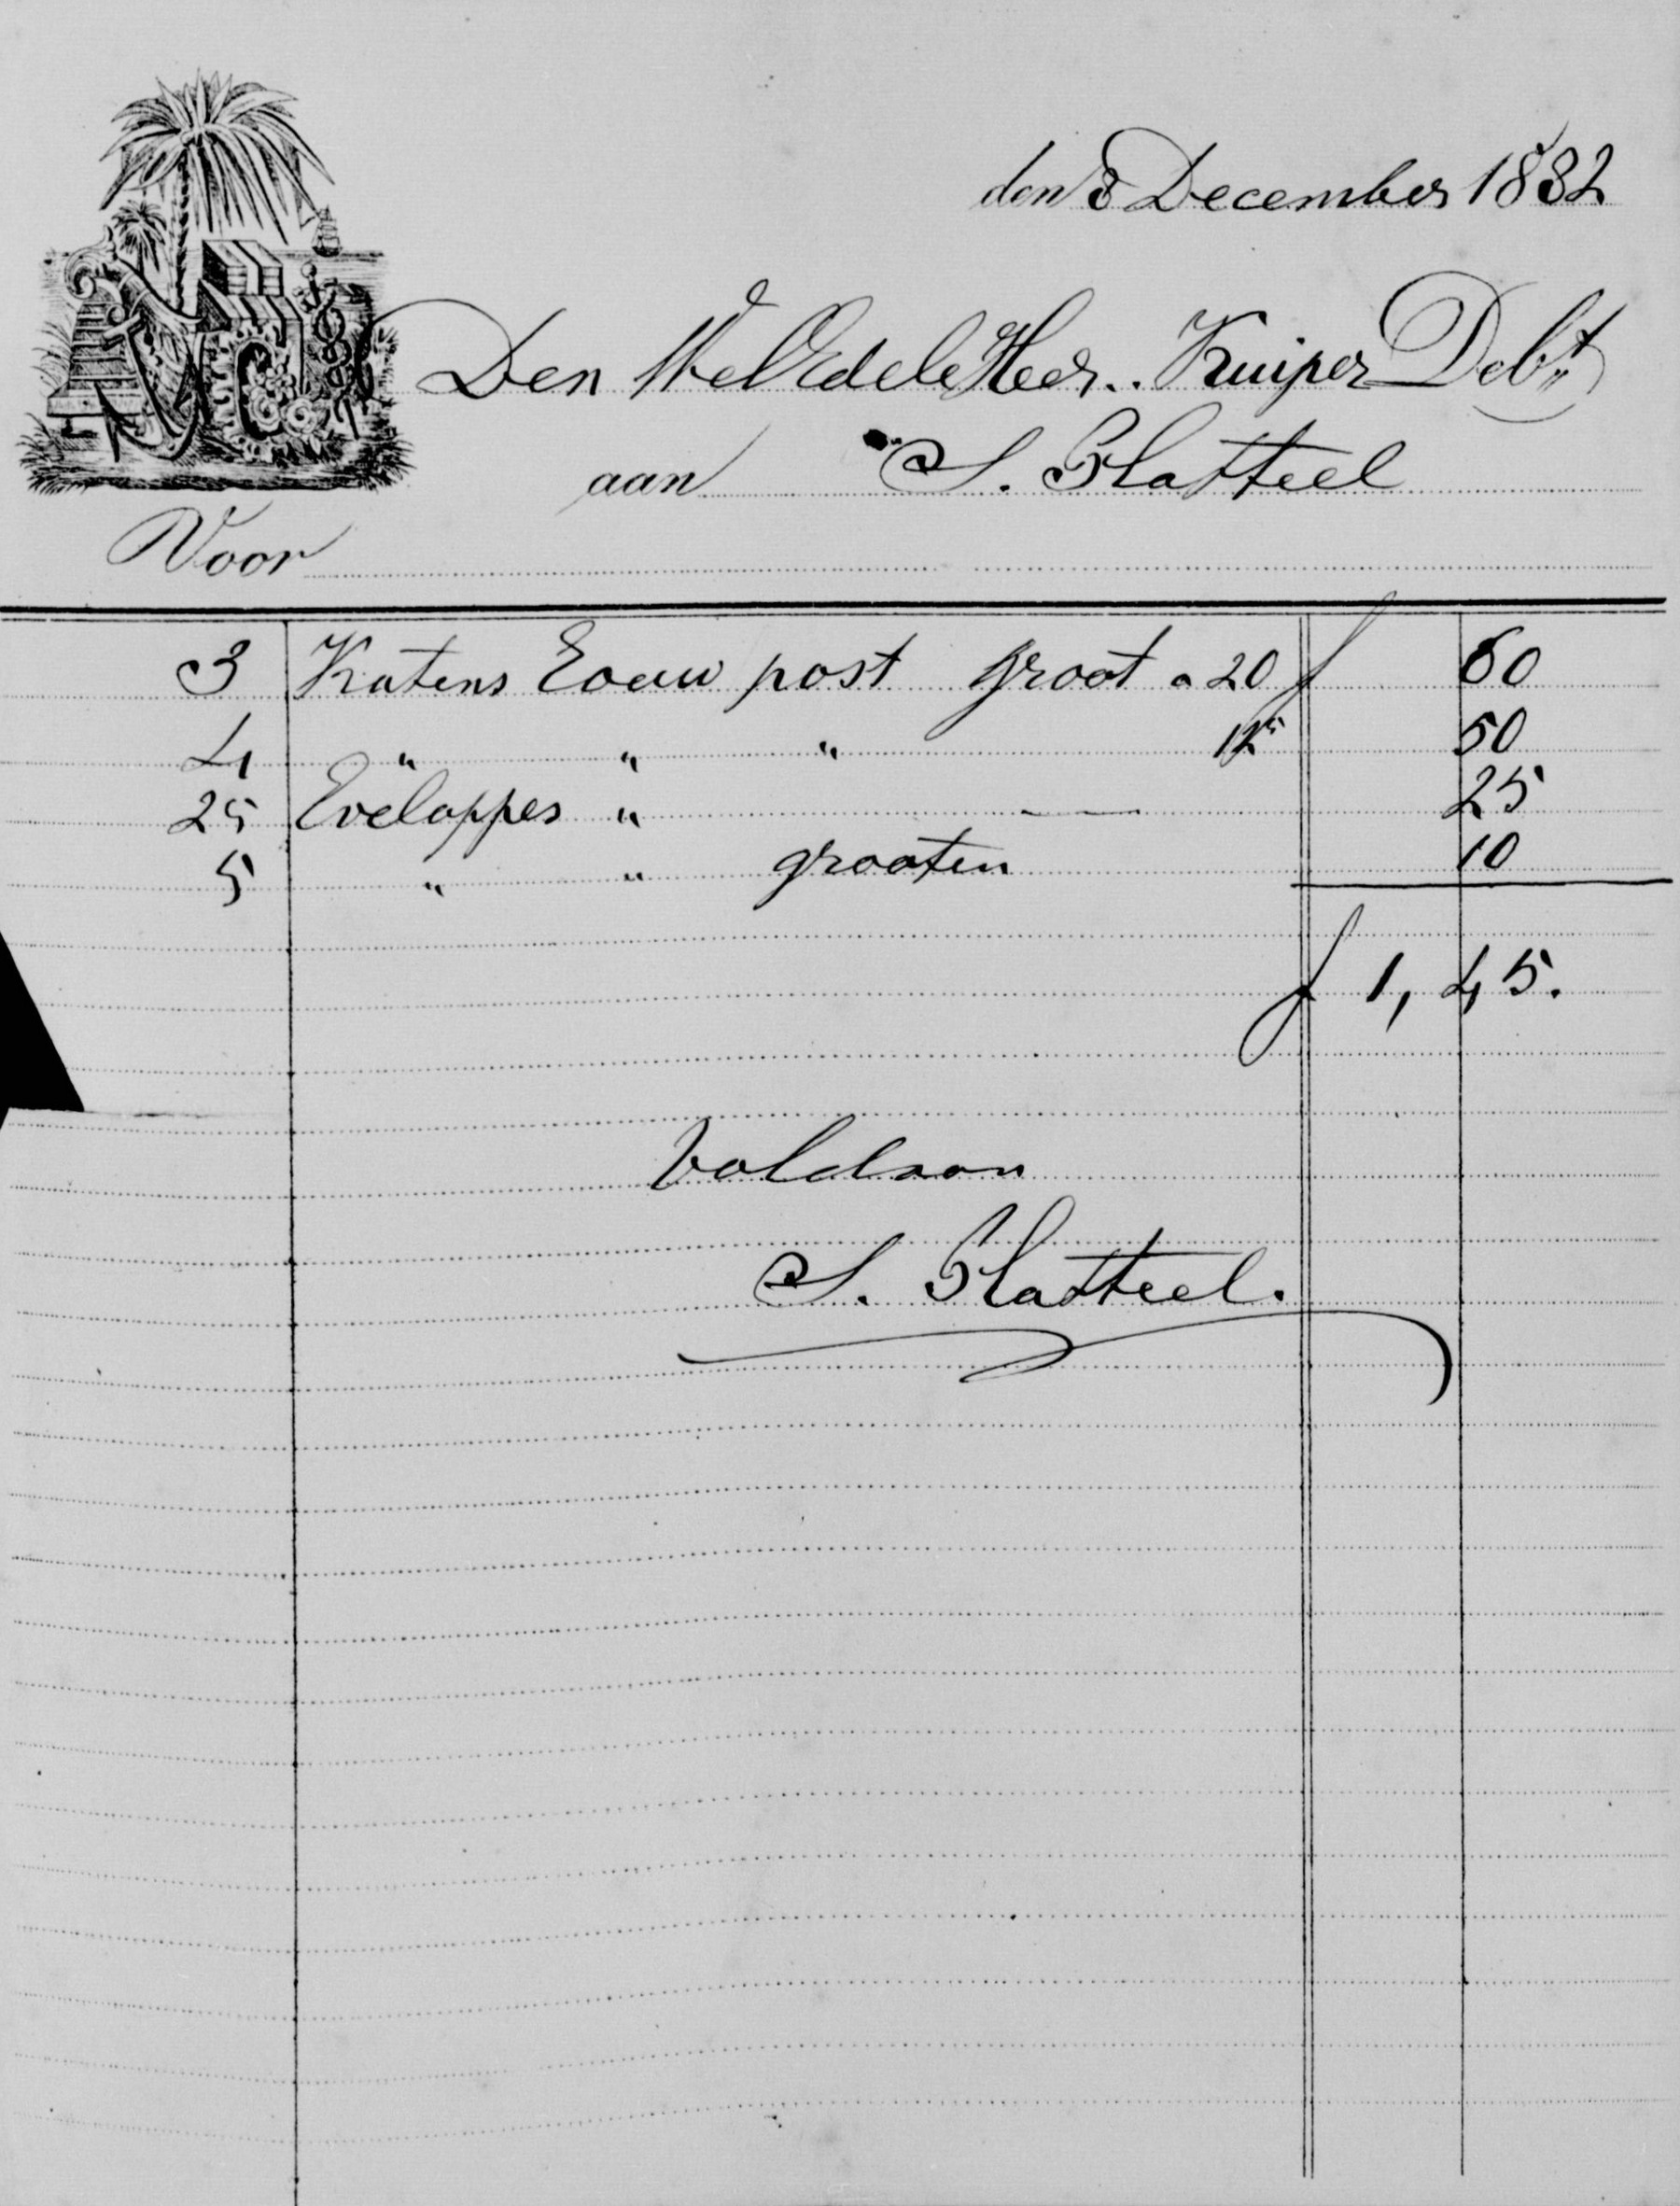 den 8 December 1882
Den WelEdele Heer.. Kuiper Debt
aan S. Platteel
Voor
3 Katens Eouw post groot a 20 f 60
4 " " " 12⁵ 50
25 Eveloppes " — 25
5 " " grooten 10
f 1,45.
Voldaan
S. Platteel.